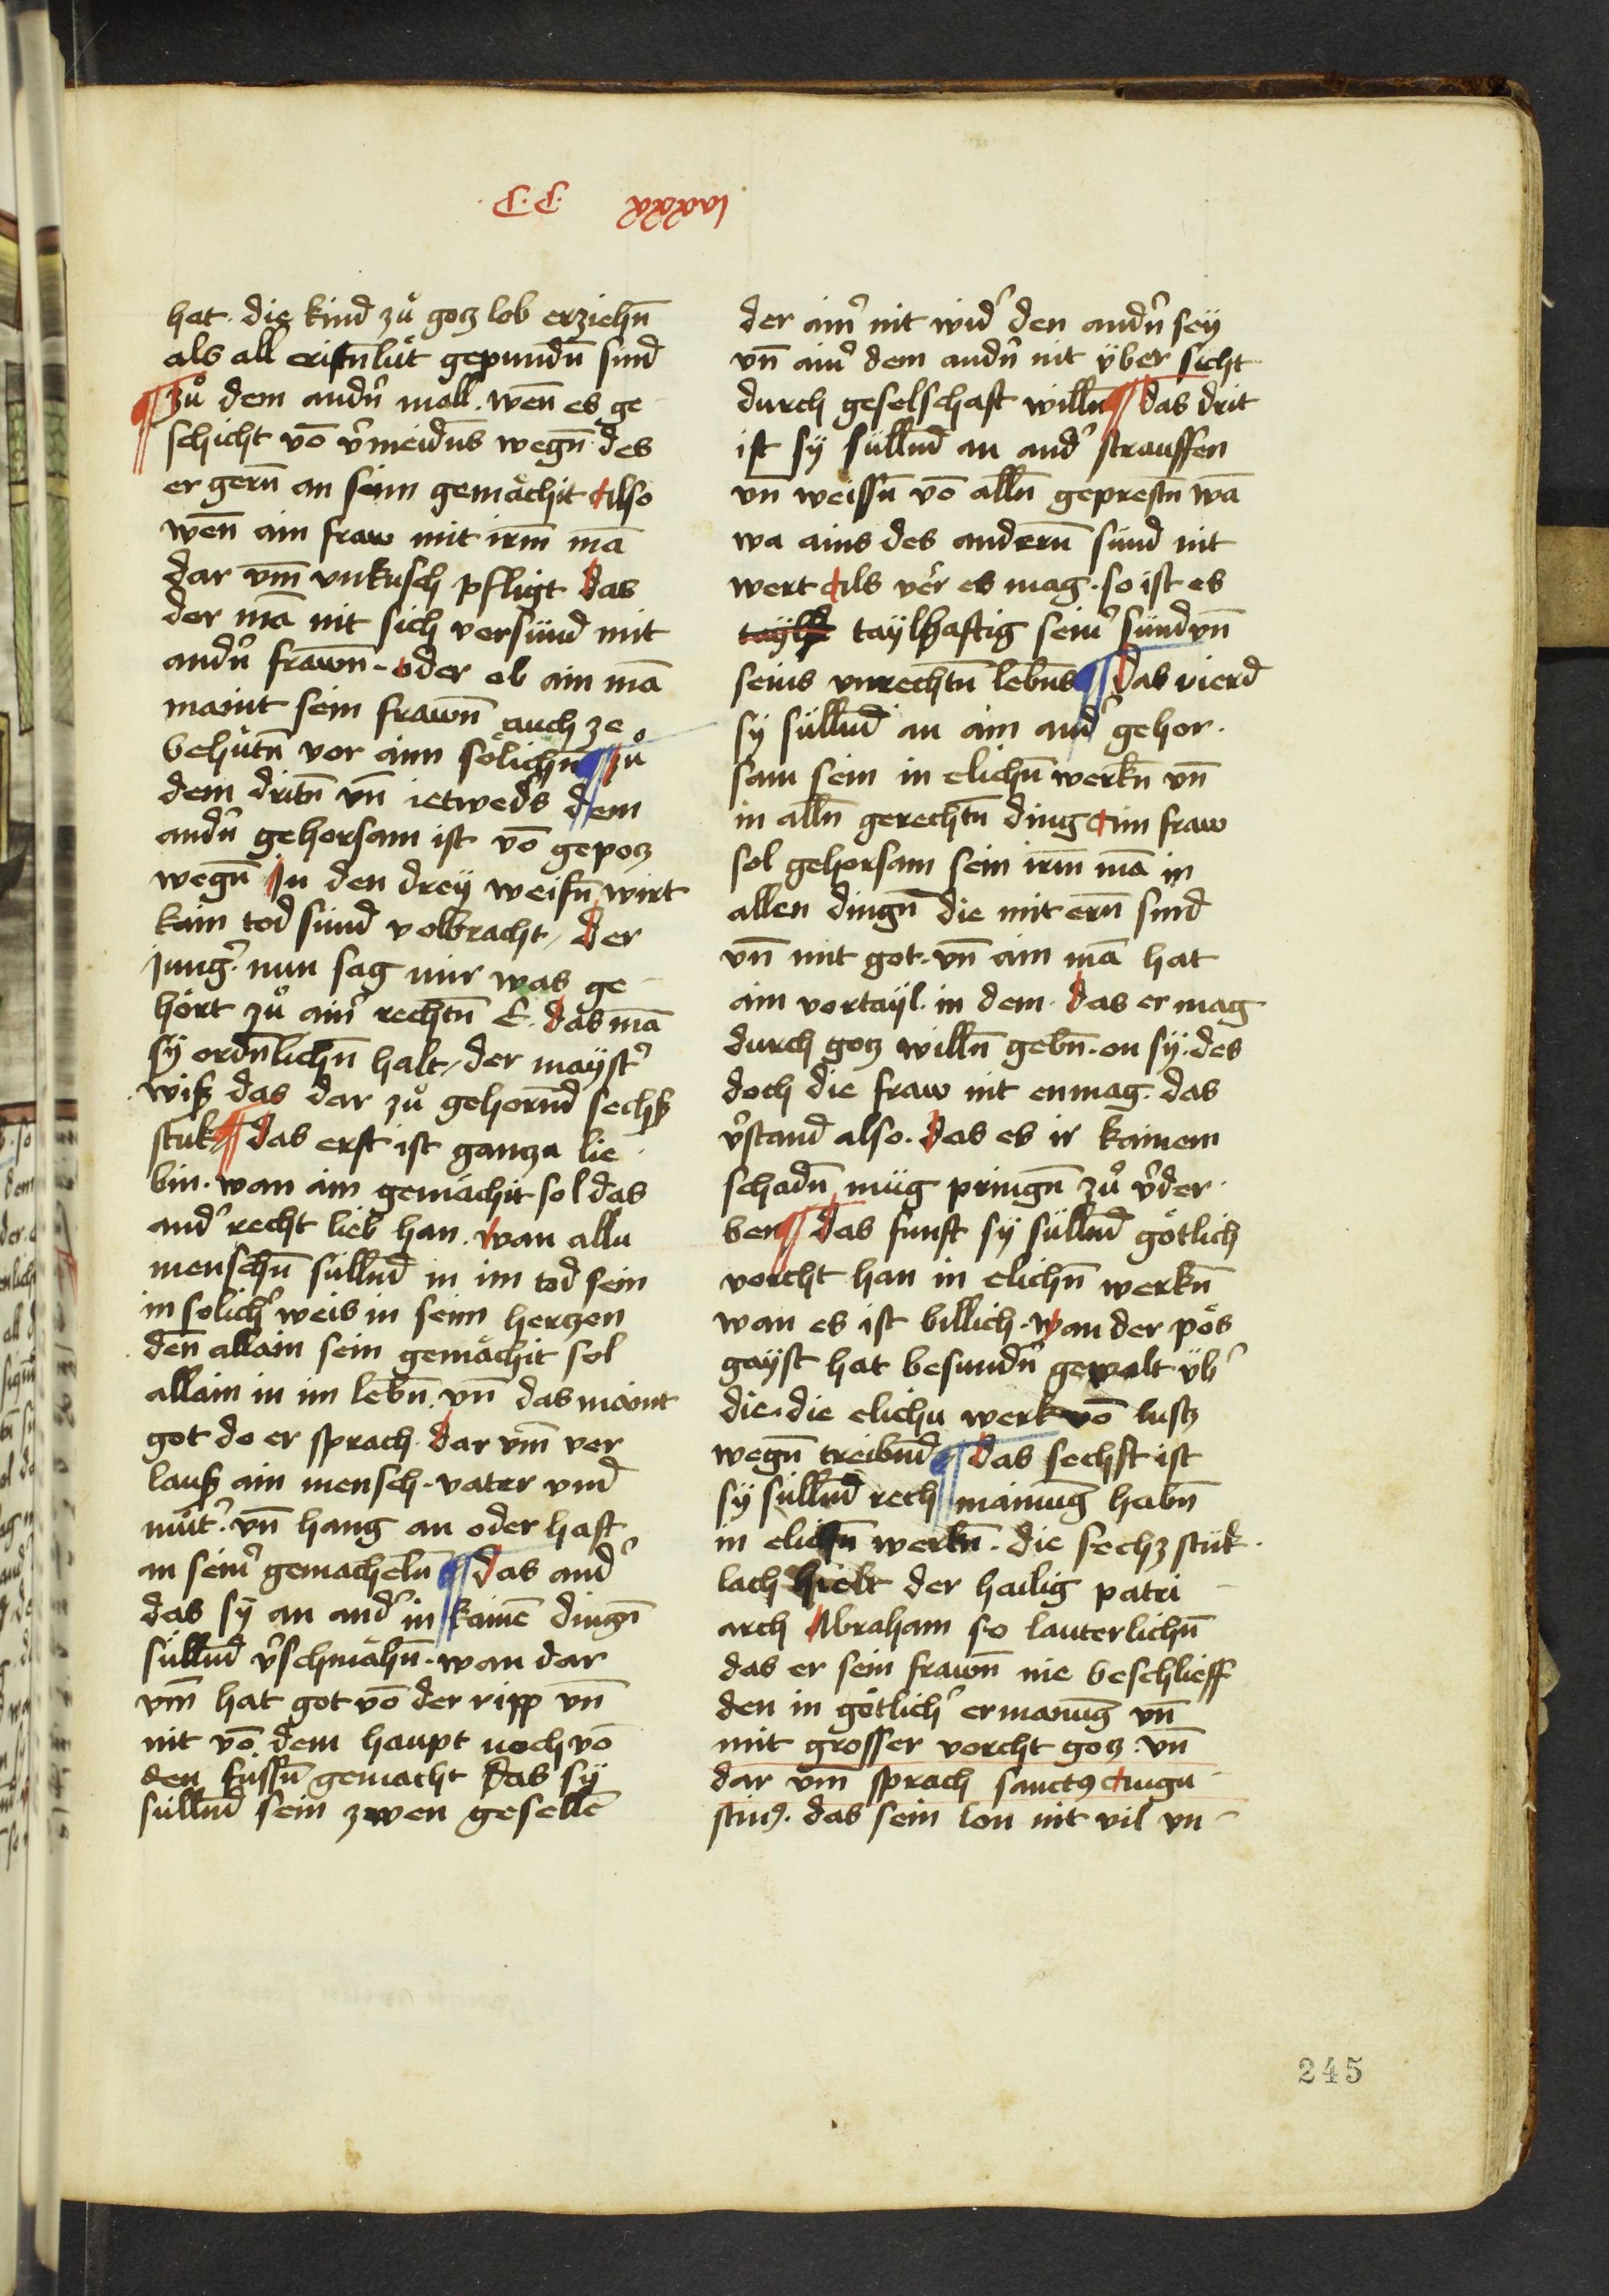 ·C·C· xxxxvı
hat· die kind zů gotz lob erziehn̄
als all cristn̄lüt gepundn̄ sind
¶ zů dem andn̄ moll· wen̄ es ge
schicht vō v̾meidūs wegn̄· des
er gern̄ an seim gemächit Also
wen̄ ain fraw mit irm̄ mā
dar vm̄ vnkusch pfligt das
der mā nit sich versünd mit
andn̄ frawn̄· oder ob ain mā
maint sein frawn̄ auch ze
behütn̄ vor aim sölichn̄ ¶ zů
dem dritn̄ vn̄ ietweds dem
andn̄ gehorsam ist vō gepotz
wegn̄ In den dreÿ weisn̄ wirt
kain tod sünd volbracht / der
jung̾· nun sag mir was ge-
hört zů ain̾ rechtn̄ E· das mā
sÿ ordn̄lichn̄ halt / der maÿst̾
wiß das dar zů gehornd̄ sechß
stuk ¶ das erst ist gantza lie
bin· wan ain gemächit sol das
and̾ recht lieb han· wan alla
menschn̄ süllnd̄ in im tod sein
in solich̾ weis in seim hertzen
den̄ allain sein gemächit sol
allain in im lebn̄· vn̄ das maint
got do er sprach· dar vm̄ ver
lauß ain mensch· vater vnd
můt̾· vn̄ hang an oder haft
an sein̾ gemacheln̄ ¶ das and̾
das sÿ an and̾ in kainē dingn̄
süllnd̄ v̾schmähn̄· wan dar
vm̄ hat got vō der ripp vn̄
nit vō dem haupt noch vō
den füssn̄ gemacht das sÿ
süllnd̄ sein zwen gesellē
der ain̾ nit wid̾ den andn̾ seÿ
vn̄ ain̾ dem andn̾ nit über sicht
durch geselschaft willn̄ ¶ das drit
ist sÿ süllnd̄ an and̾ strauffen
vn̄ weissn̄ vō alln̄ geprestn̄ wā
wa ains des andern̄ sünd nit
wert Als ver̄ es mag· so ist es
taÿlh taÿlhaftig sein̾ sünd vn̄
seins vnrechtn̄ lebn̄s ¶ das vierd
sÿ süllnd̄ an ain and̾ gehor·
sam sein in elichn̄ werkn̄ vn̄
in alln̄ gerechtn̄ ding Ain fraw
sol gehorsam sein irm̄ mā in
allen dingn̄ die mit ern̄ sind
vn̄ mit got· vn̄ ain mā hat
ain vortaÿl· in dem· das er mag
durch gotz willn̄ gebn̄· on sÿ· des
doch die fraw nit enmag· das
v̾stand also· das es ir kainem
schadn̄ müg pringn̄ zů v̾der·
ben ¶ das funft sÿ süllnd̄ götlich
vorcht han in elichn̄ werkn̄
wan es ist billich· wan der pös
gaÿst hat besundn̾ gewalt üb̾
die· die elichu werk vō lustz
wegn̄ treibnd̄ ¶ das sechst ist
sÿ süllnd̄ rech mainu̅g habn̄
in elichn̄ werkn̄· die sechz stük·
lach hielt der hailig patri
arch Abraham so lauterlichn̄
das er sein frawn̄ nie beschlieff
den in götlich̾ ermanu̅g vn̄
mit grosser vorcht gotz· vn̄
dar vm̄ sprach sanctꝰ Augu
stinꝰ· das sein lon nit vil vn-
245